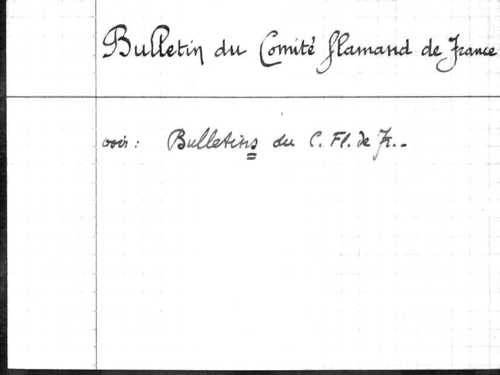 Bulletin du Comité flamand de France
voir : Bulletins du C. Fl. de Fr. -